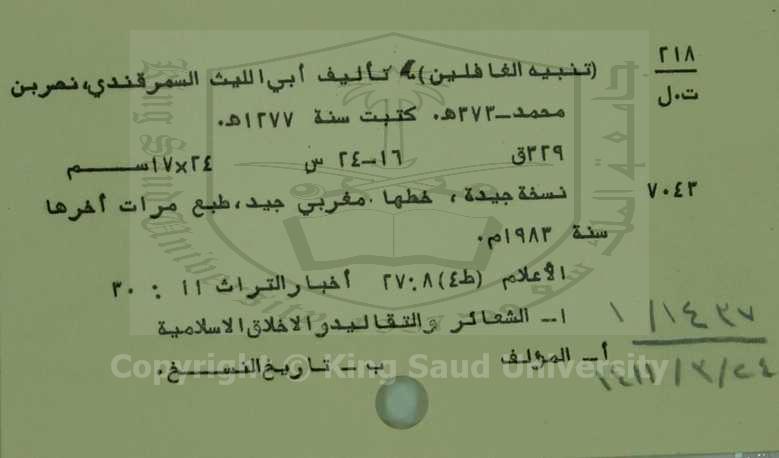 ٢١٨
ت.ل
(تنبيه الغافلين)، تأليف أبي الليث السمرقندي، نصر بن
محمد -٣٧٣هـ. كتبت سنة ١٢٧٧هـ.
٣٢٩ق ١٦-٢٤ س ٢٤×١٧سم
٧٠٤٣
نسخة جيدة، خطها مغربي جيد، طبع مرات أخرها
سنة ١٩٨٣م.
الأعلام (ط٤) ٨:٢٧ أخبار التراث ١١ : ٣٠
١- الشعائر والتقاليد والاخلاق الاسلامية
أ- المؤلف ب- تاريخ النسخ.
١٤٣٧/ ١
Copyright © King Saud University